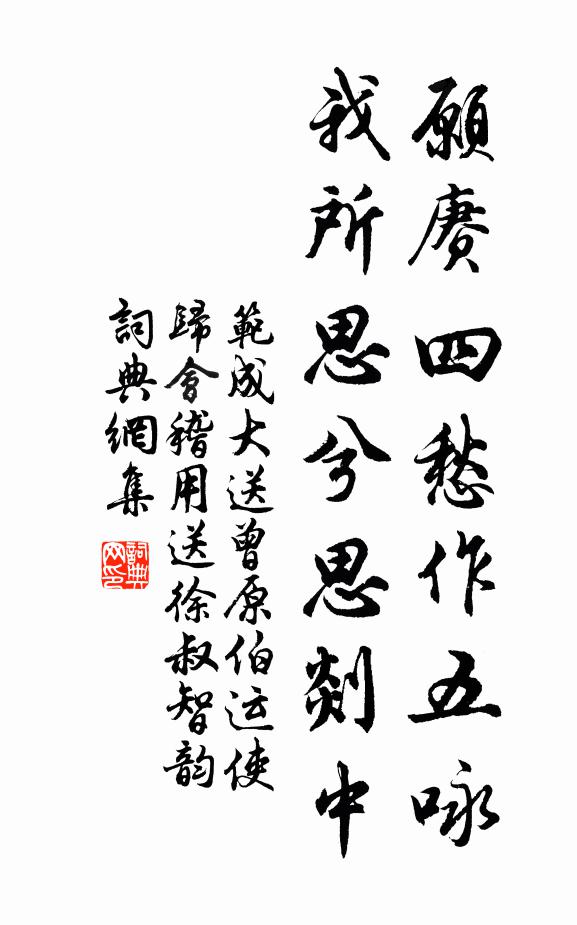 願賡四愁作五咏
我所思兮思剡中
範成大送曾原伯运使
歸會稽用送徐叔智韵
詞典網集
詞典网印